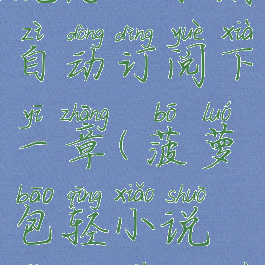 zì dòng dìng yuè xià
自动订阅下
yī zhāng bō luó
一章(菠萝
bāo qīng xiǎo shuō
包轻小说